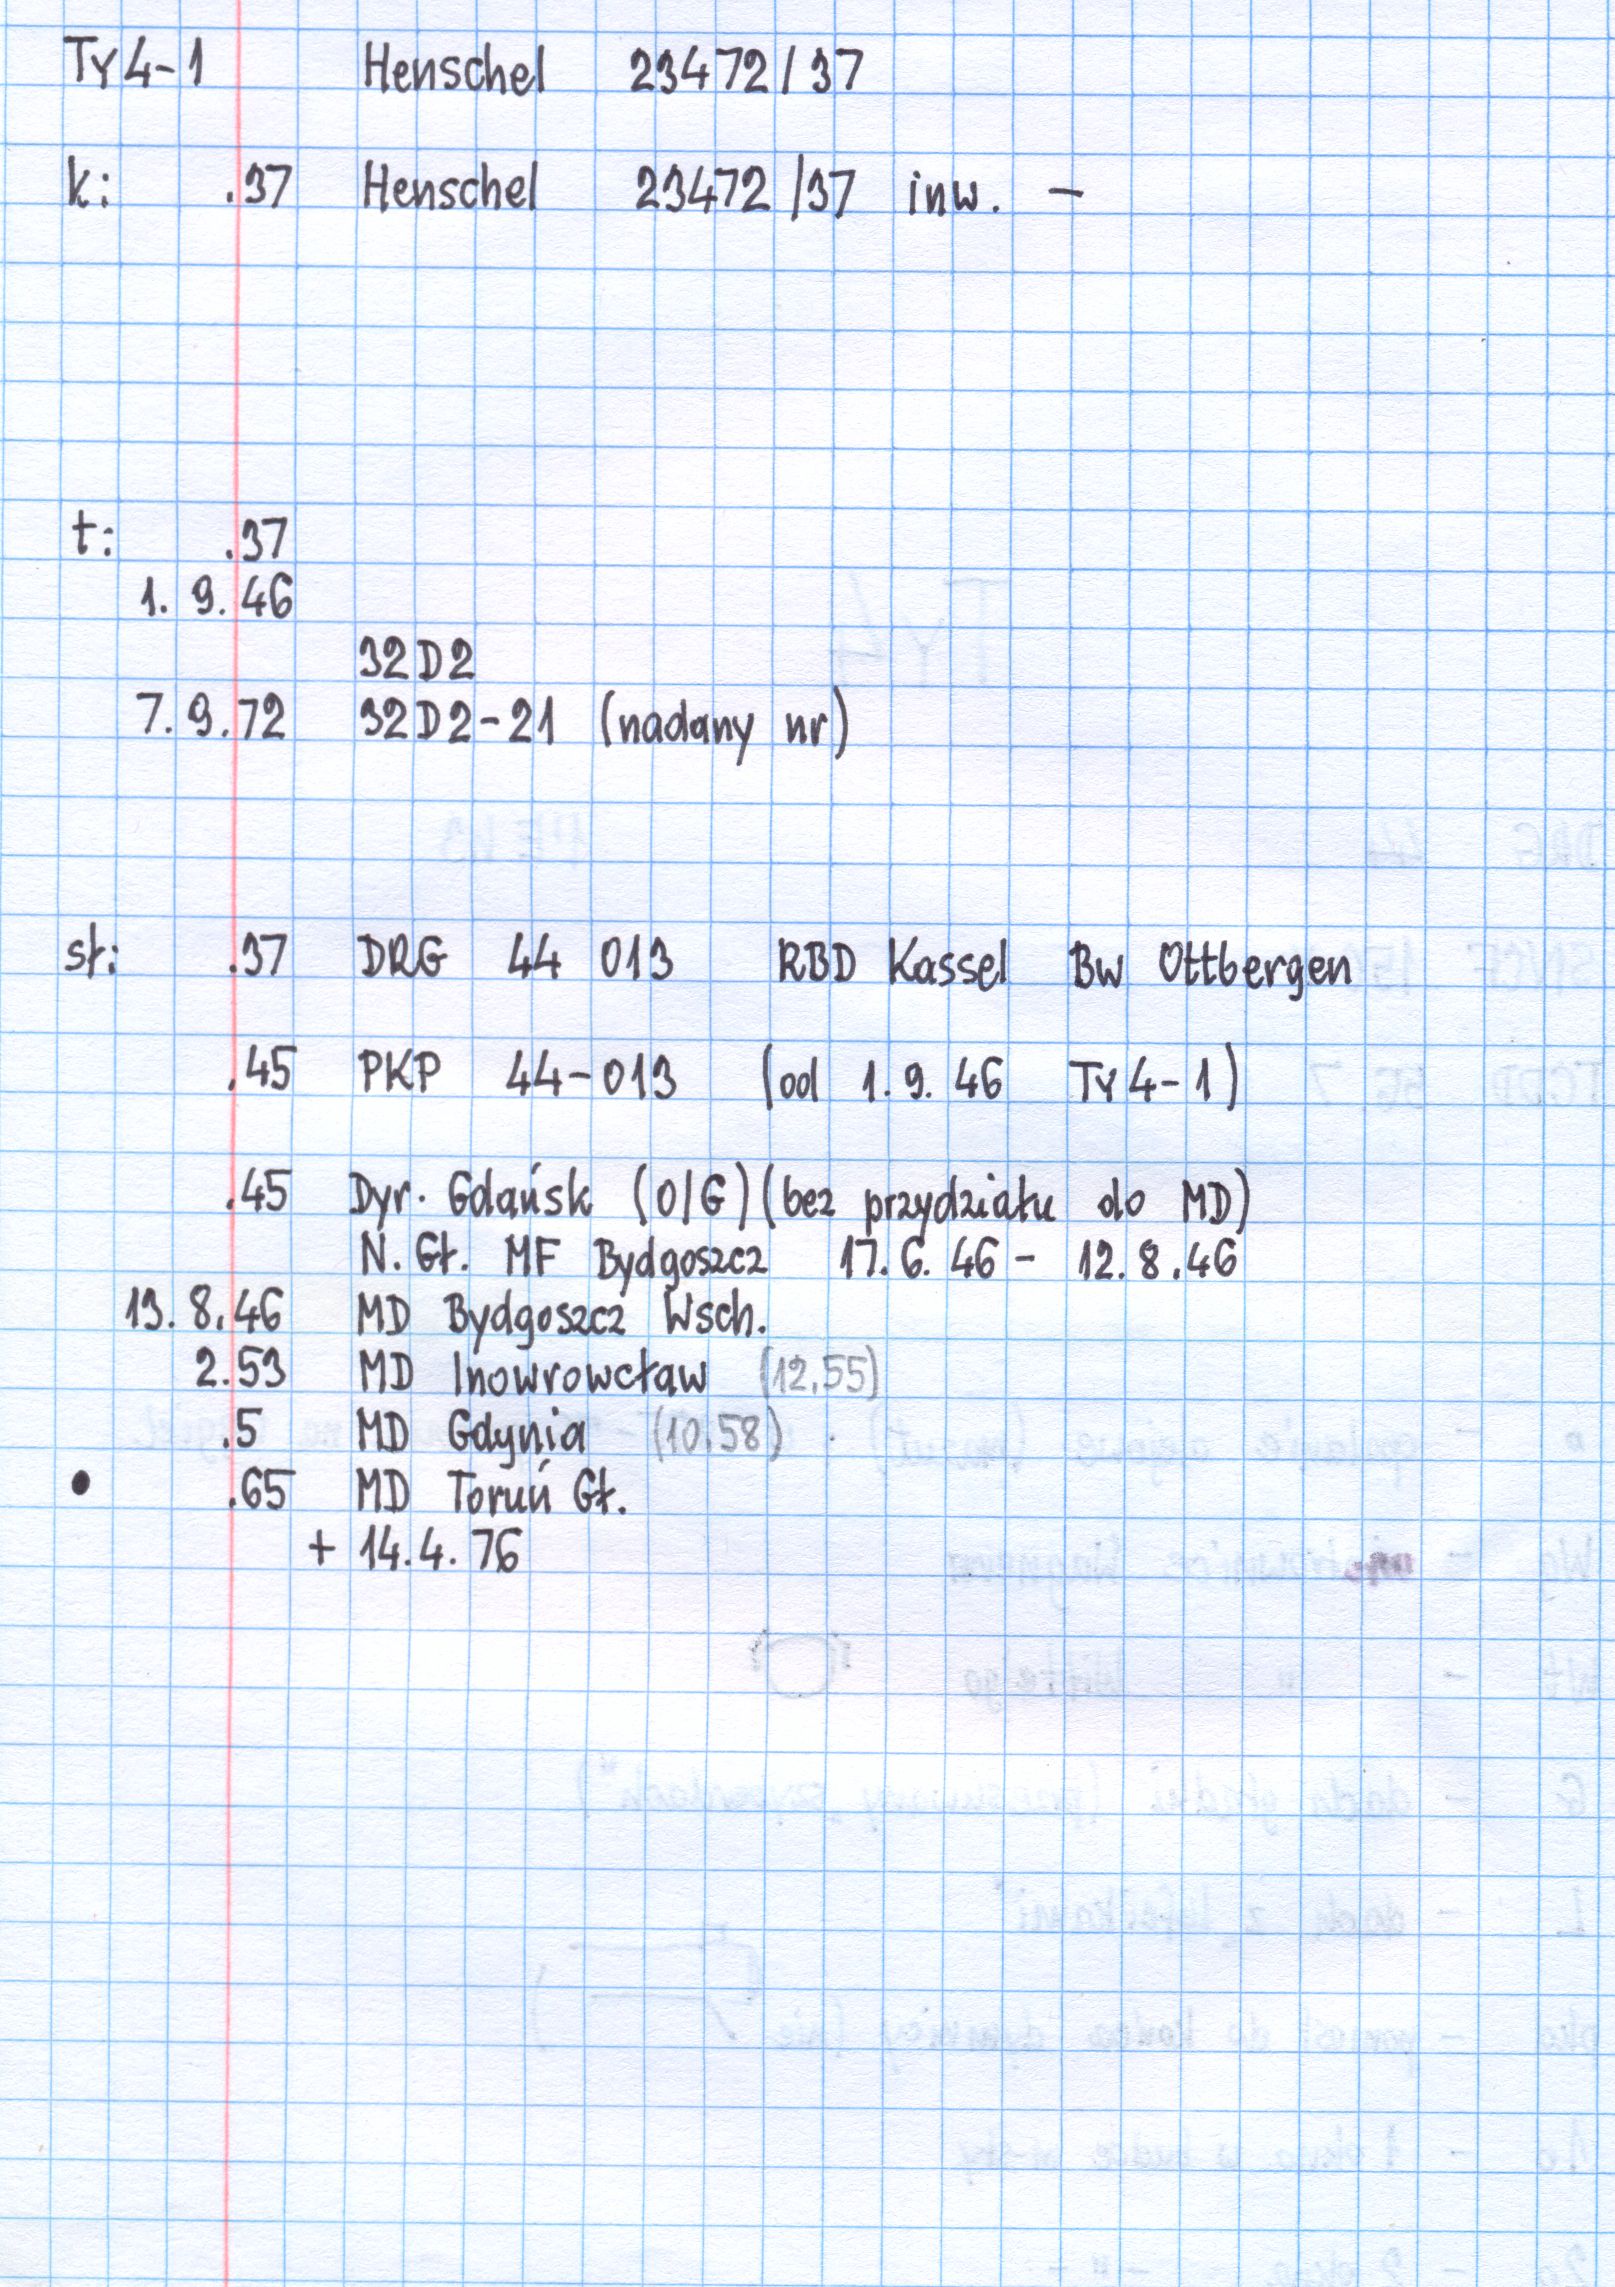 Ty4-1 Henschel 23472/37
k: .37 Henschel 23472/37 inw. -
t: .37
1. 9. 46
32D2
7. 9. 72 32D2-21 (nadany nr)
st: .37 DRG 44 013 RBD Kassel Bw Ottbergen
.45 PKP 44-013 (od 1. 9. 46 Ty4-1)
.45 Dyr. Gdańsk (O/G) (bez przydziału do MD)
N. Gł. MF Bydgoszcz 17. 6. 46 - 12. 8. 46
13. 8. 46 MD Bydgoszcz Wsch.
2. 53 MD Inowrowcław (12.55)
.5 MD Gdynia (10.58)
• .65 MD Toruń Gł.
+ 14. 4. 76